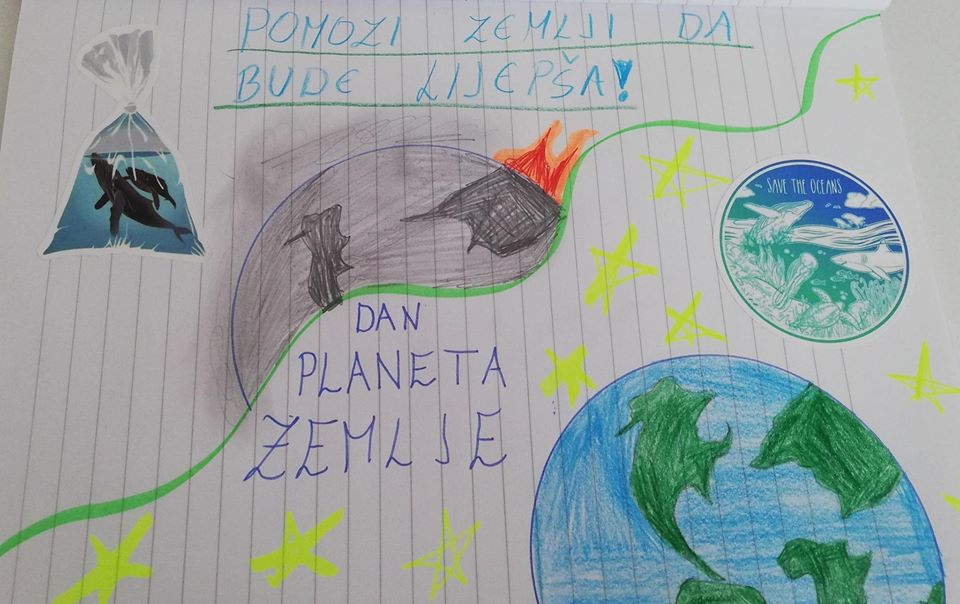 POMOZI ZEMLJI DA
BUDE LIJEPŠA!
SAVE THE OCEANS
DAN
PLANETA
ZEMLJE